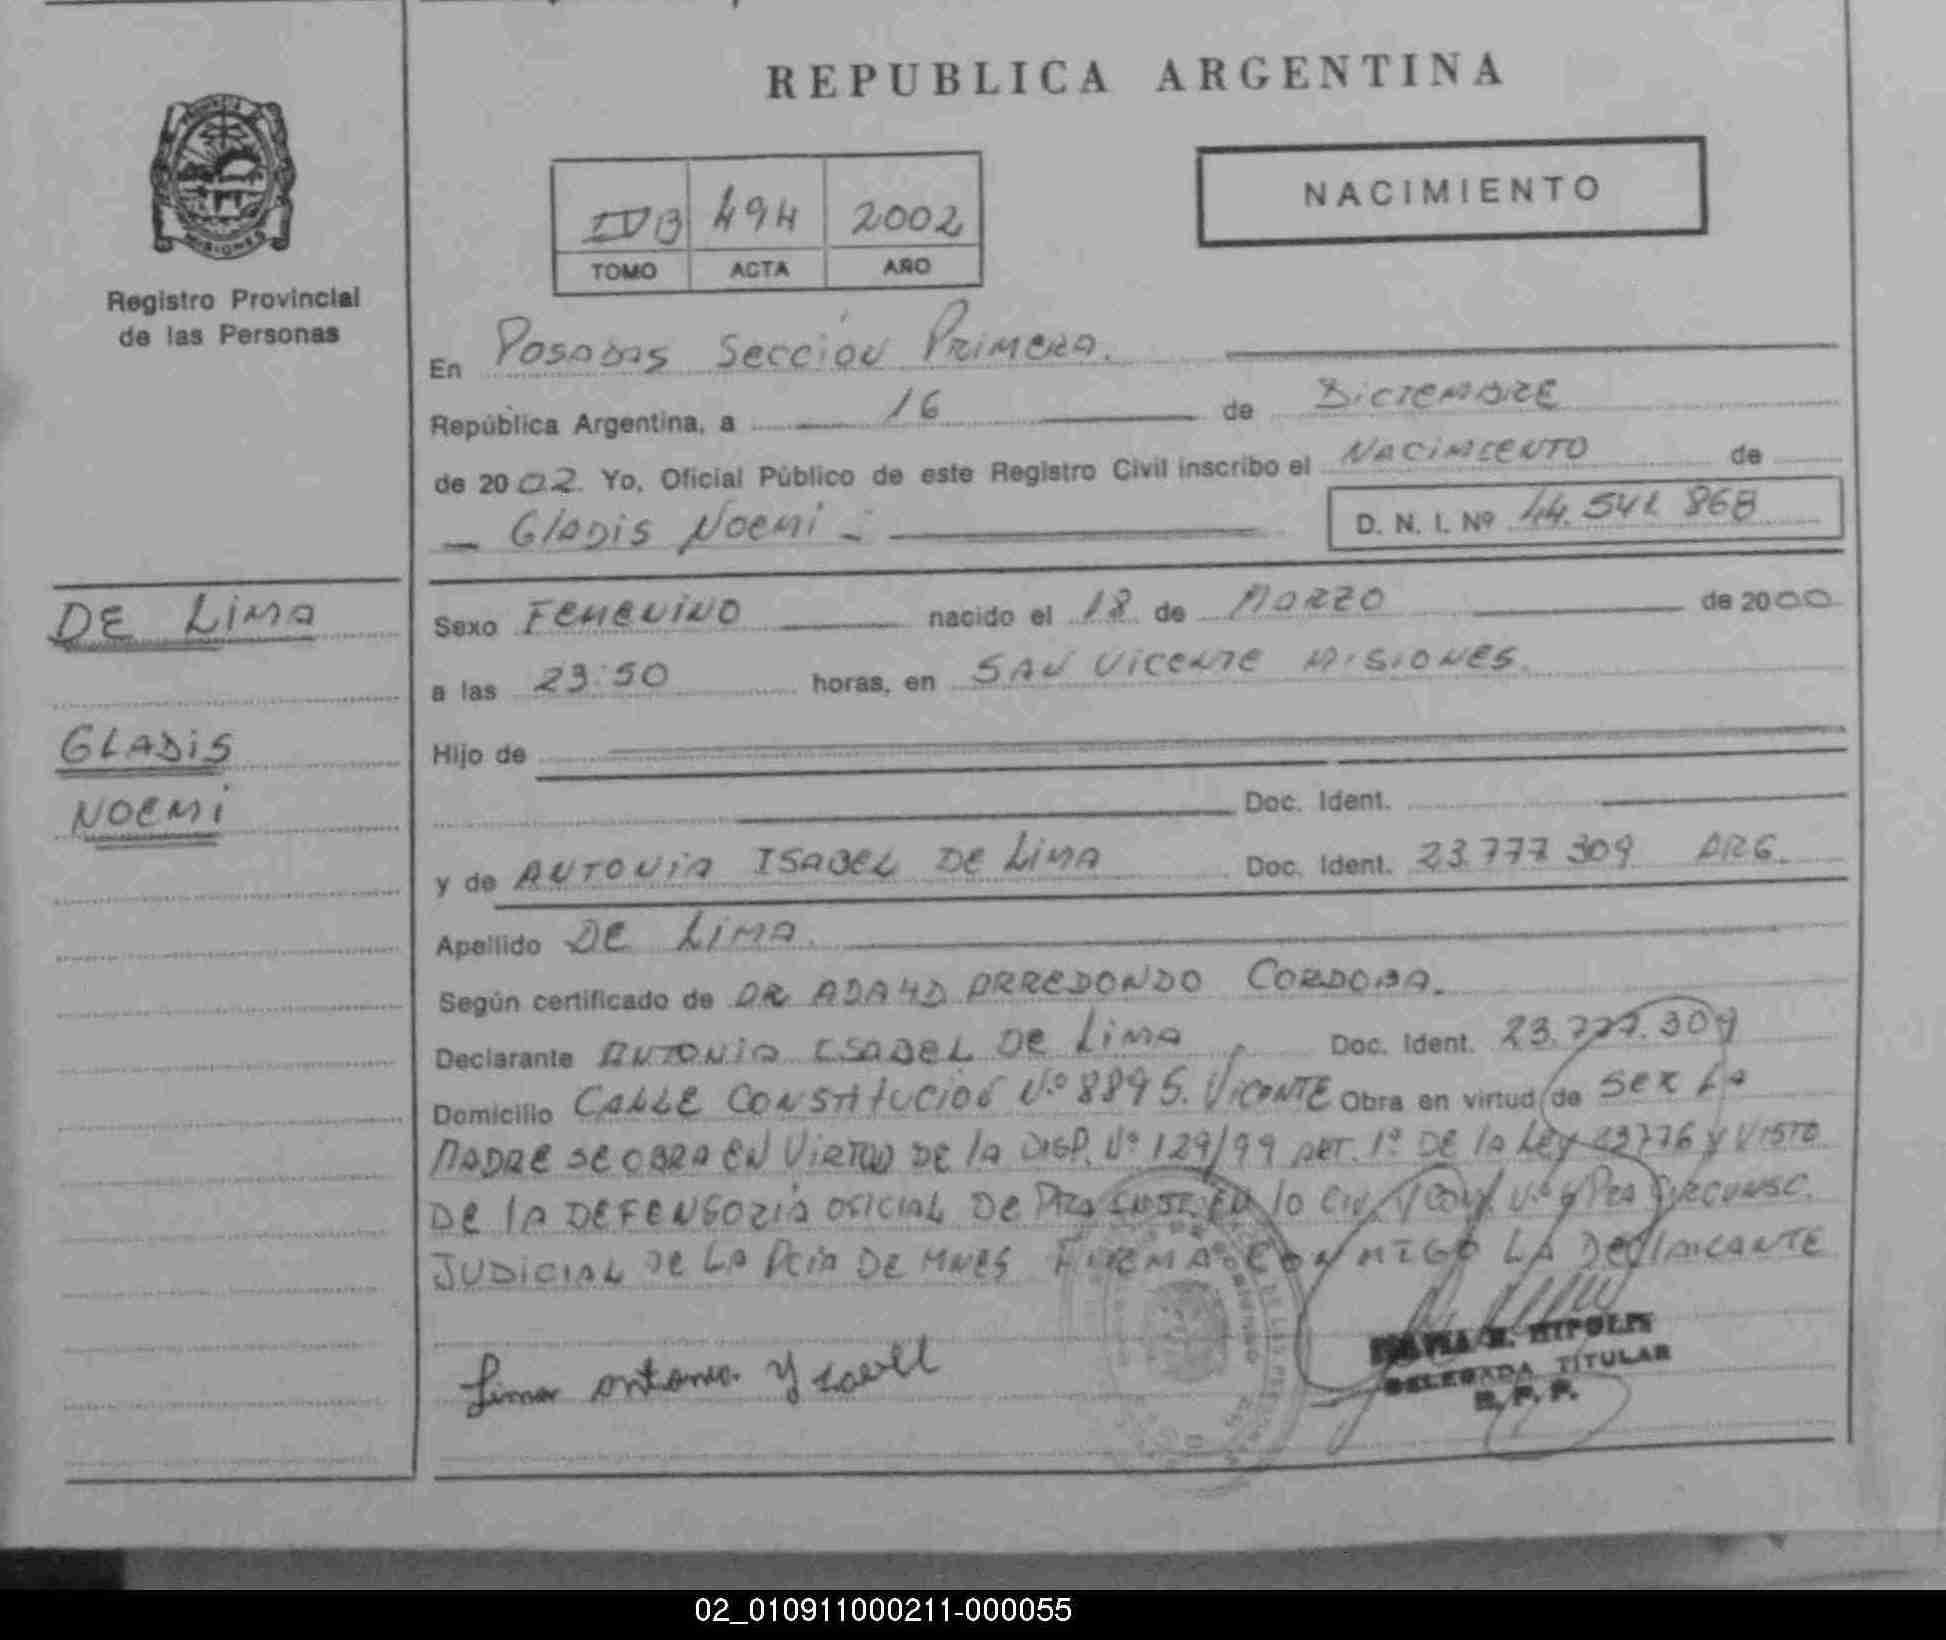 REPUBLICA ARGENTINA
NACIMIENTO
IVB 494 2002
TOMO ACTA AÑO
MISIONES
Registro Provincial
de las Personas
En Posadas Sección Primera.
República Argentina, a 16 de Diciembre
de 2002. Yo, Oficial Público de este Registro Civil inscribo el Nacimiento de
Gladis Noemi D. N. I. Nº 44.541 868
DE Lima
GLADIS
NOEMI
Sexo Femenino nacido el 18 de Marzo de 2000
a las 23:50 horas, en SAN Vicente Misiones.
Hijo de
Doc. Ident.
y de ANTONIA ISABEL DE LIMA Doc. Ident. 23.777 309 ARG.
Apellido DE LIMA.
Según certificado de DR ARREDONDO CORDOBA.
Declarante ANTONIA ISABEL DE LIMA Doc. Ident. 23.777.309
Domicilio CALLE CONSTITUCIÓN Nº 889 S. VICENTE Obra en virtud de SER LA
MADRE SE OBRA EN VIRTUD DE LA DISP. Nº 129/99 ART. 1º DE LA LEY Y VISTO
DE LA DEFENSORIA OFICIAL DE EN LO CIV. Y COM. CIRCUNSC.
JUDICIAL DE LA PCIA DE MNES FIRMA CONMIGO LA DECLARANTE
Lima antonia Ysaell
HIPOLIT
DELEGADA TITULAR
R. P. P.
02_010911000211-000055